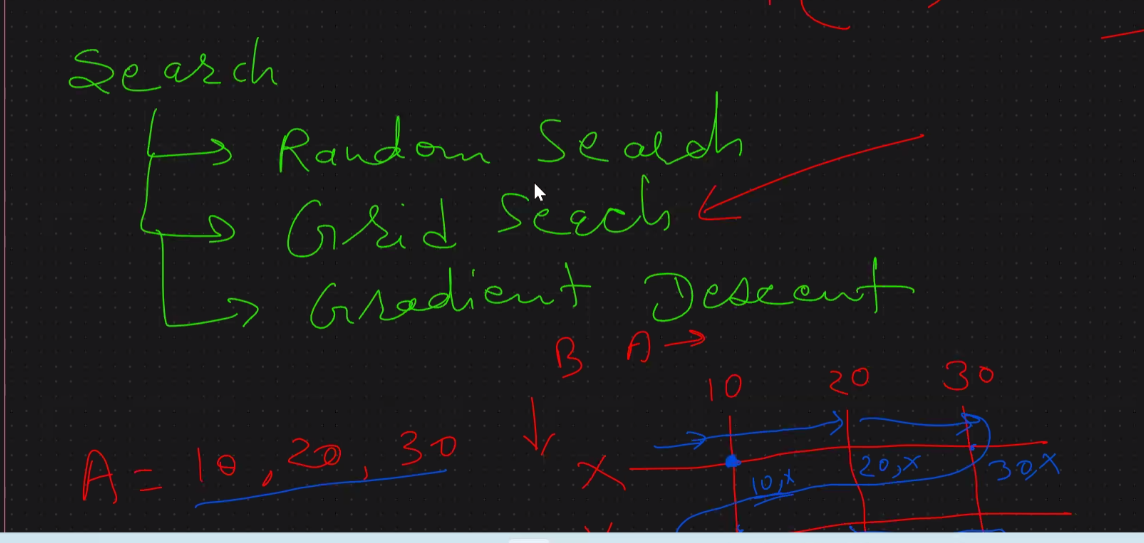 Search
Random Search
Grid Seach
Gradient Descent
B A →
10 20 30
A = 10, 20, 30
X
10,x 20,x 30,x